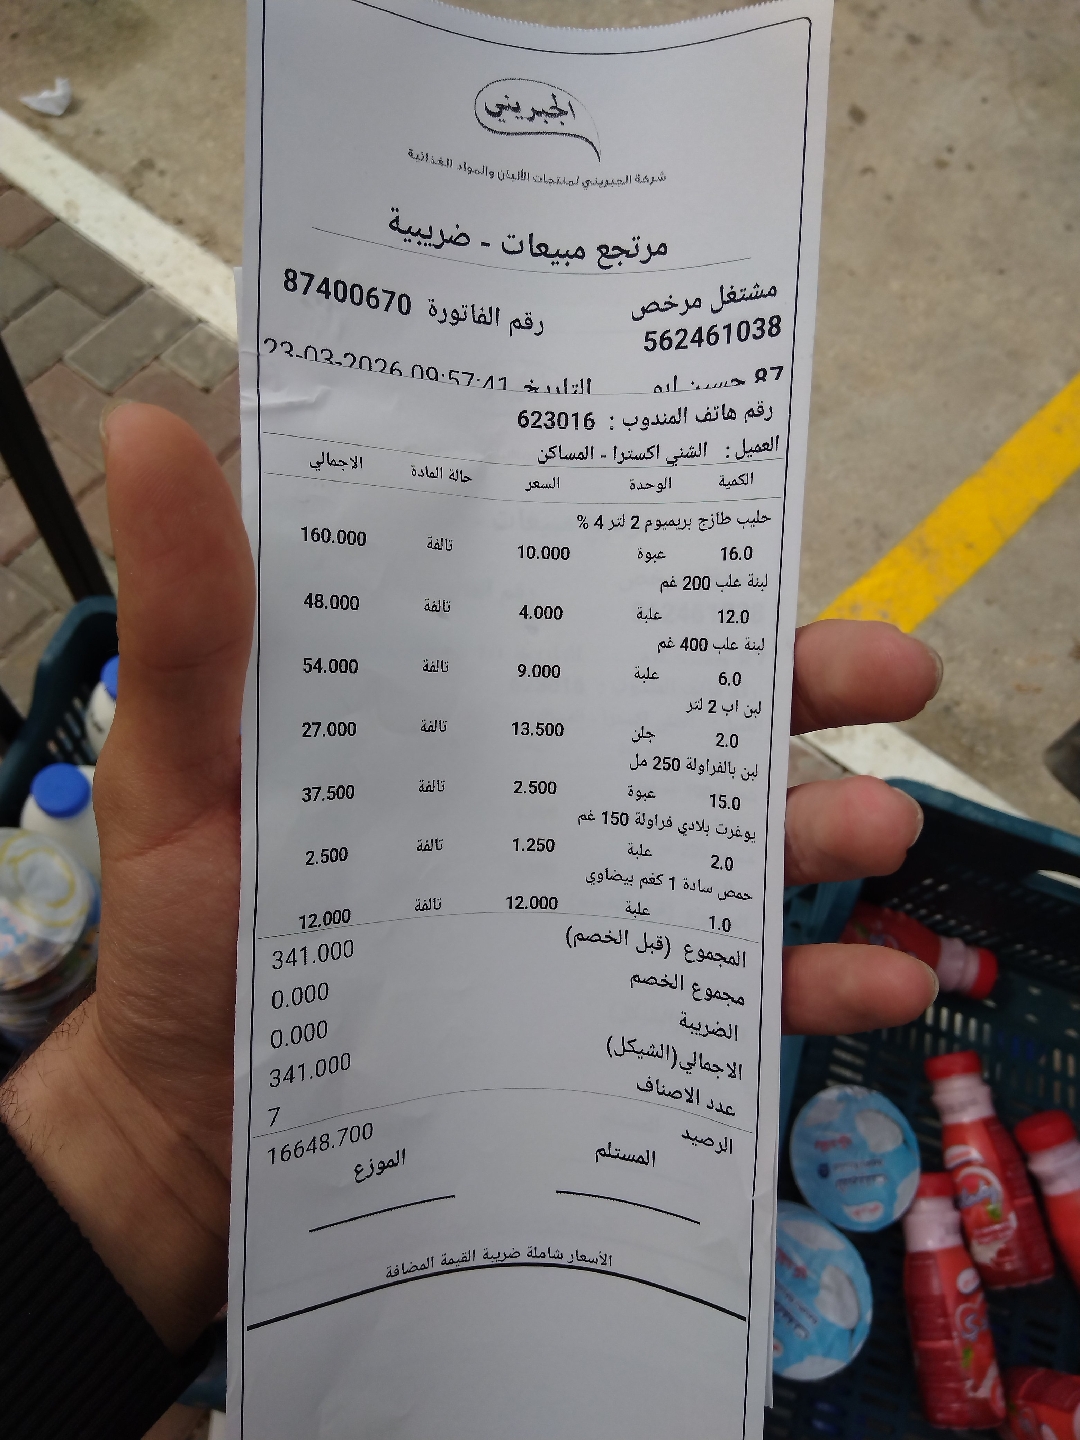 الجبريني
شركة الجبريني لمنتجات الألبان والمواد الغذائية
مرتجع مبيعات - ضريبية
مشتغل مرخص رقم الفاتورة 87400670
562461038
87 حسين ابو التاريخ 23-03-2026 09:57:41
رقم هاتف المندوب : 623016
العميل : الشني اكسترا - المساكن
الكمية الوحدة السعر حالة المادة الاجمالي
حليب طازج بريميوم 2 لتر 4 %
16.0 عبوة 10.000 تالفة 160.000
لبنة علب 200 غم
12.0 علبة 4.000 تالفة 48.000
لبنة علب 400 غم
6.0 علبة 9.000 تالفة 54.000
لبن اب 2 لتر
2.0 جلن 13.500 تالفة 27.000
لبن بالفراولة 250 مل
15.0 عبوة 2.500 تالفة 37.500
يوغرت بلادي فراولة 150 غم
2.0 علبة 1.250 تالفة 2.500
حمص سادة 1 كغم بيضاوي
1.0 علبة 12.000 تالفة 12.000
المجموع (قبل الخصم) 341.000
مجموع الخصم 0.000
الضريبة 0.000
الاجمالي(الشيكل) 341.000
عدد الاصناف 7
الرصيد 16648.700
المستلم الموزع
الأسعار شاملة ضريبة القيمة المضافة